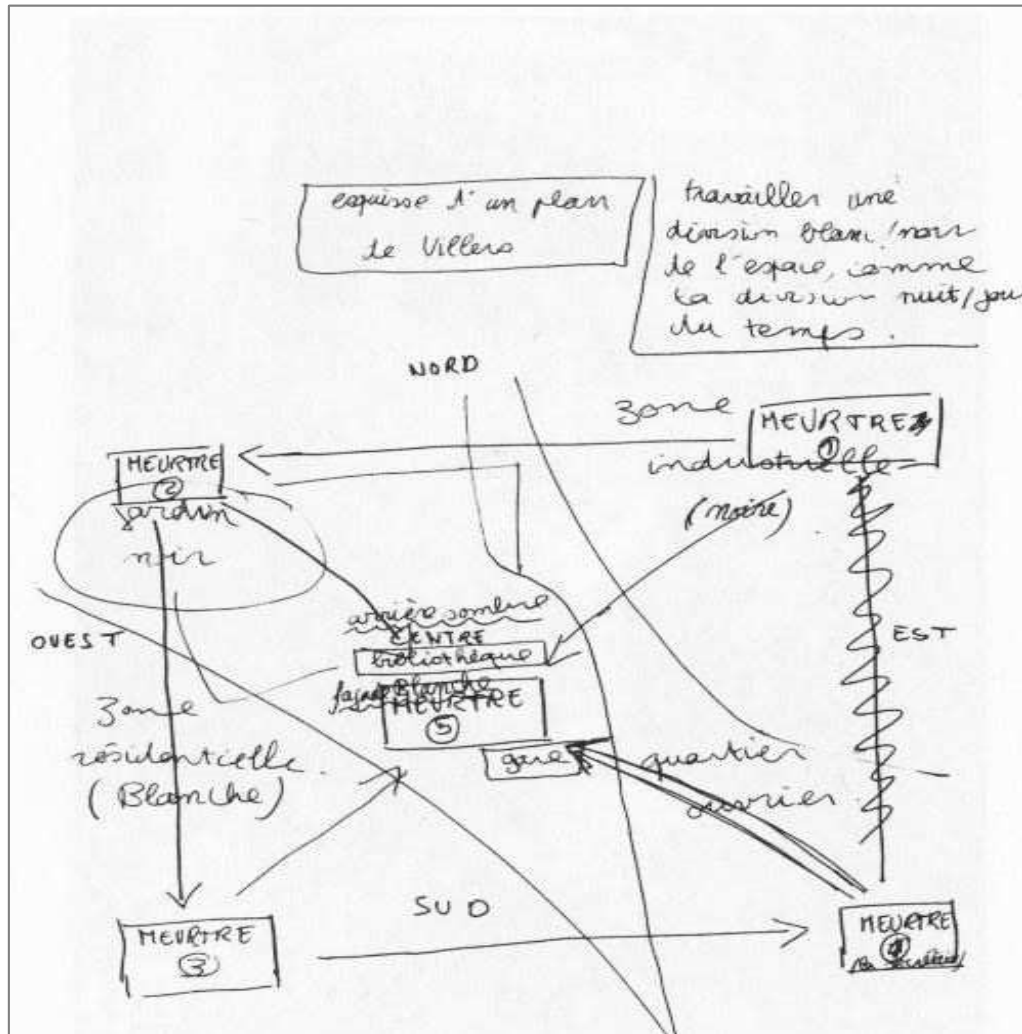 esquisse d'un plan
de Villers
travailler une
division blanc/noir
de l'espace, comme
la division nuit/jou
du temps.
NORD
zone
MEURTRE
1
industrielle
(noire)
MEURTRE
2
jardin
noir
OUEST
EST
arrière sombre
CENTRE
bibliothèque
façade blanche
MEURTRE
5
gare
quartier
ouvrier
zone
résidentielle
(Blanche)
SUD
MEURTRE
3
MEURTRE
4